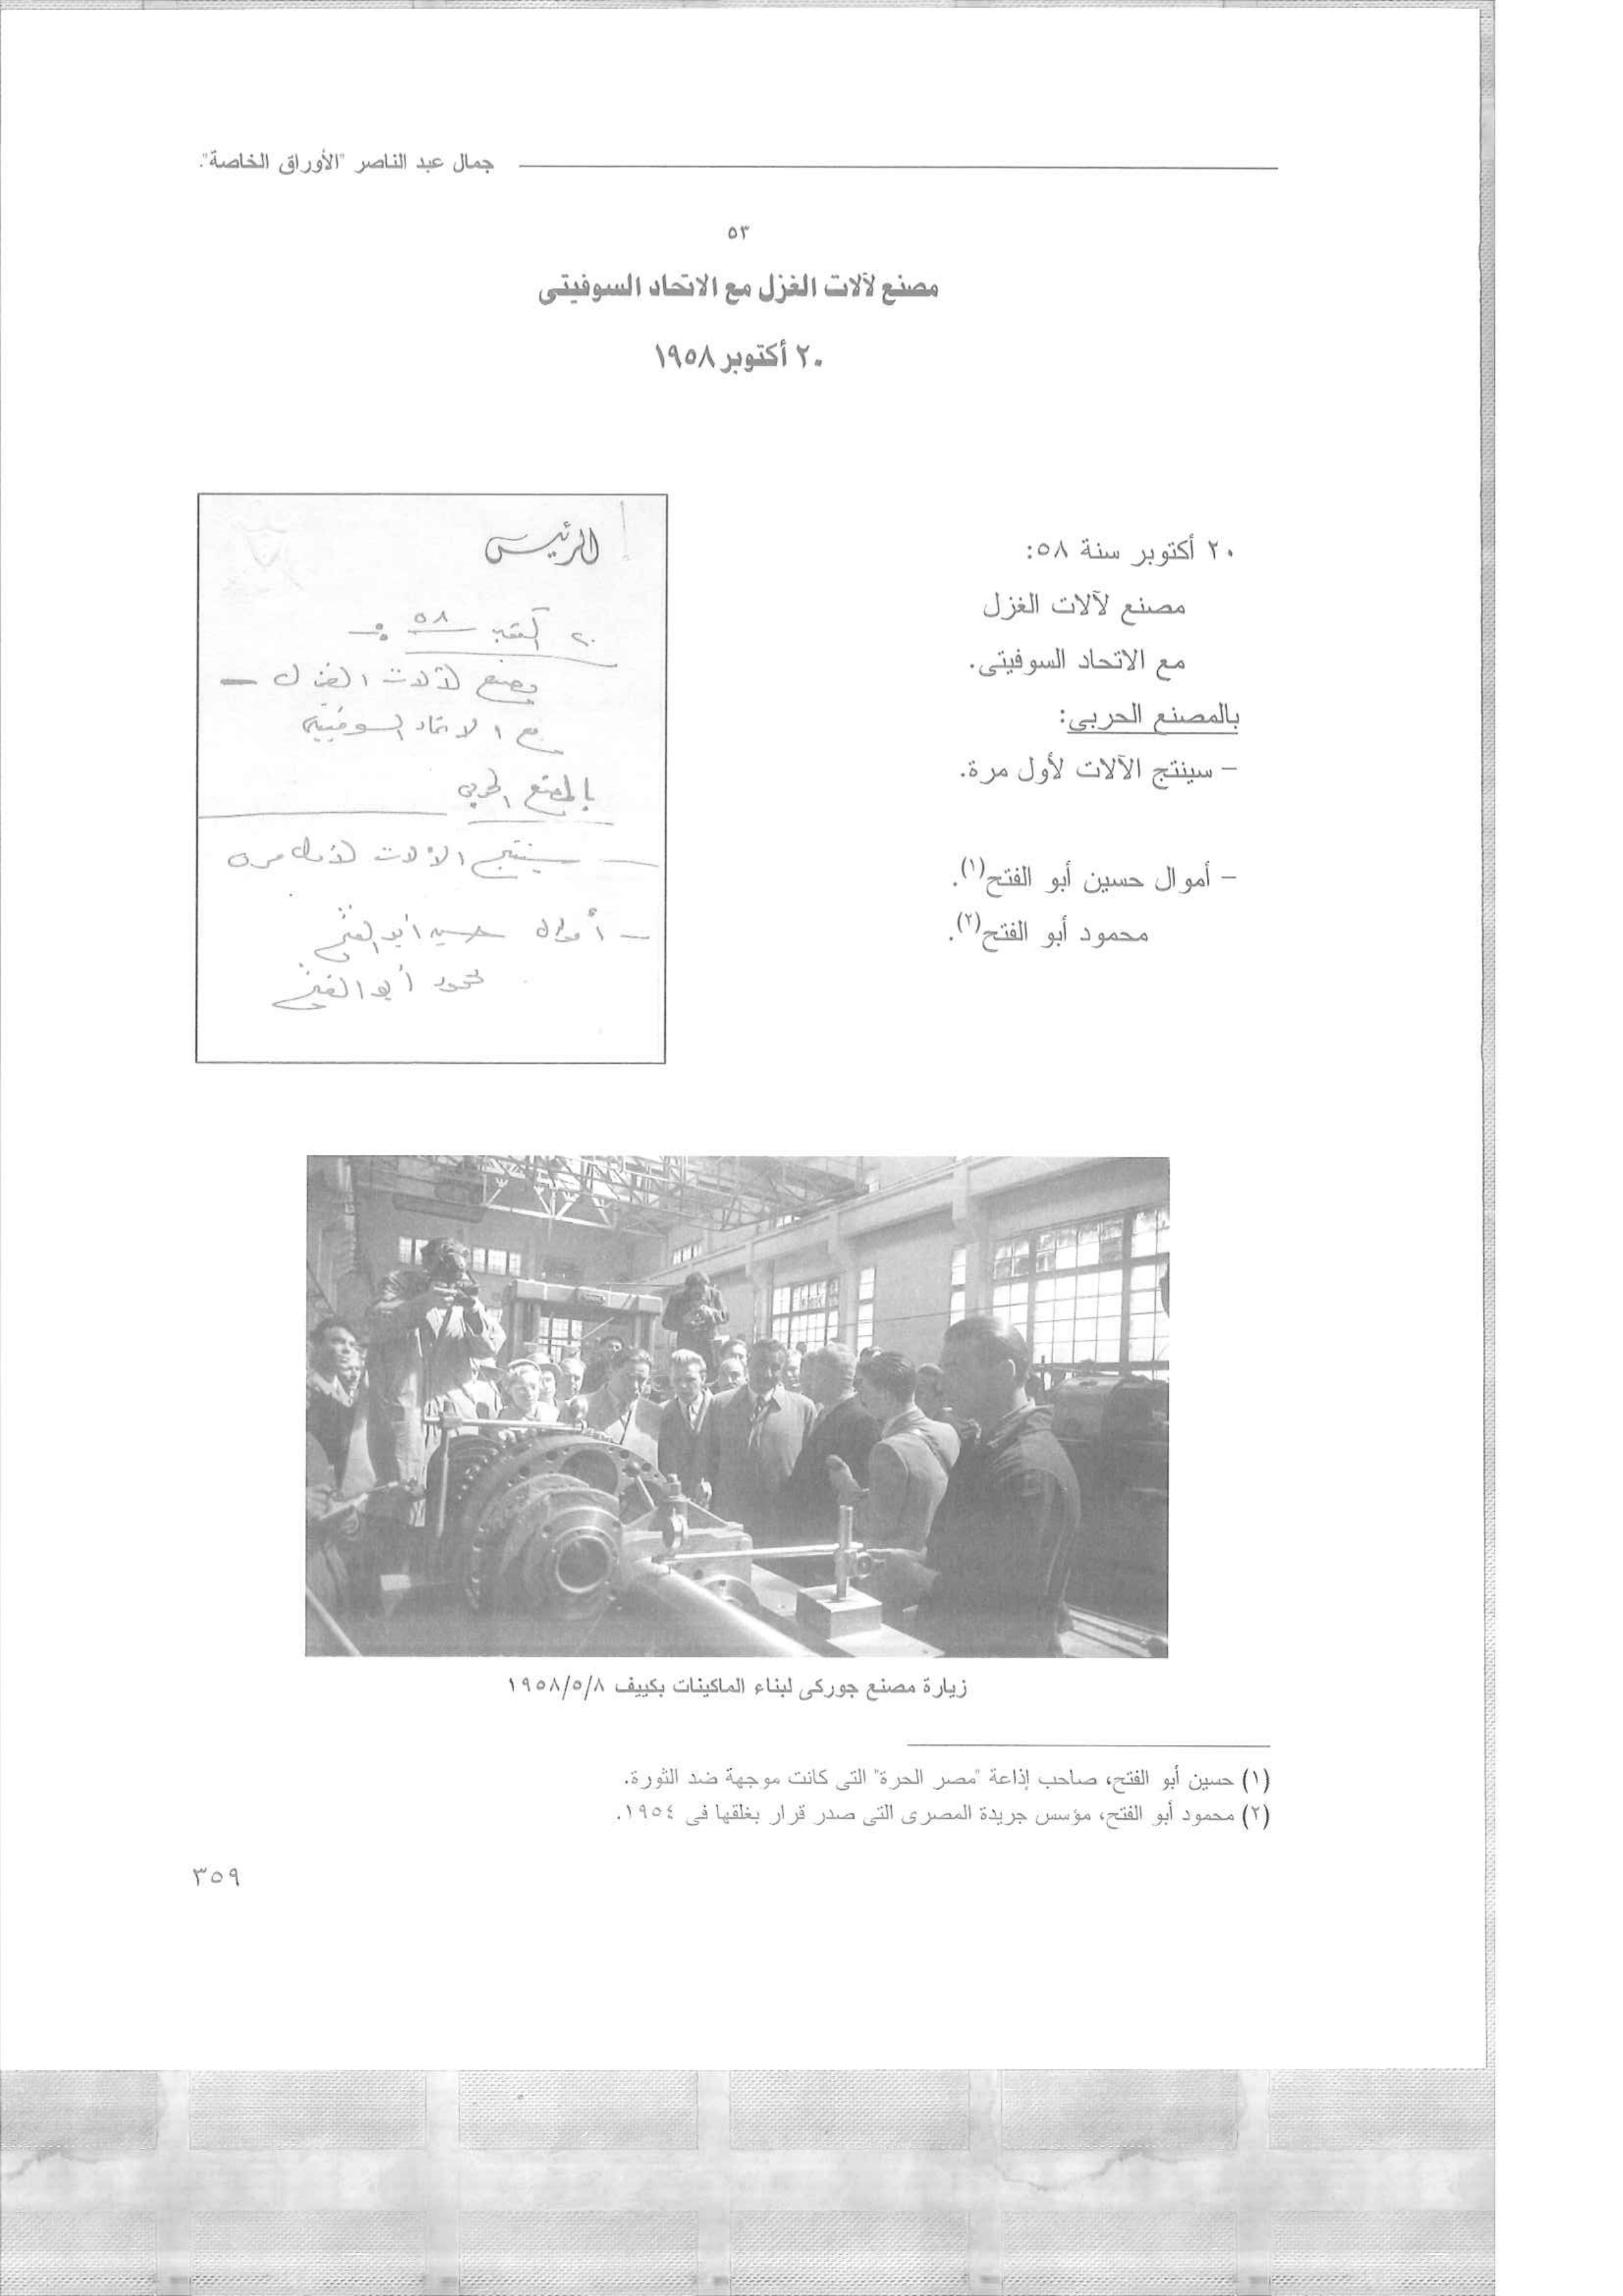 جمال عبد الناصر "الأوراق الخاصة".
٥٣
مصنع لآلات الغزل مع الاتحاد السوفيتى
٢٠ أكتوبر ١٩٥٨
٢٠ أكتوبر سنة ٥٨:
مصنع لآلات الغزل
مع الاتحاد السوفيتى.
بالمصنع الحربى:
– سينتج الآلات لأول مرة.
– أموال حسين أبو الفتح(١).
محمود أبو الفتح(٢).
الرئيس
٢٠ أكتوبر ٥٨ :-
مصنع لآلات الغزل –
مع الاتحاد السوفيتى
بالمصنع الحربى
– سينتج الآلات لأول مره
– أموال حسين أبو الفتح
محمود أبو الفتح
زيارة مصنع جوركى لبناء الماكينات بكييف ١٩٥٨/٥/٨
(١) حسين أبو الفتح، صاحب إذاعة "مصر الحرة" التى كانت موجهة ضد الثورة.
(٢) محمود أبو الفتح، مؤسس جريدة المصرى التى صدر قرار بغلقها فى ١٩٥٤.
٣٥٩